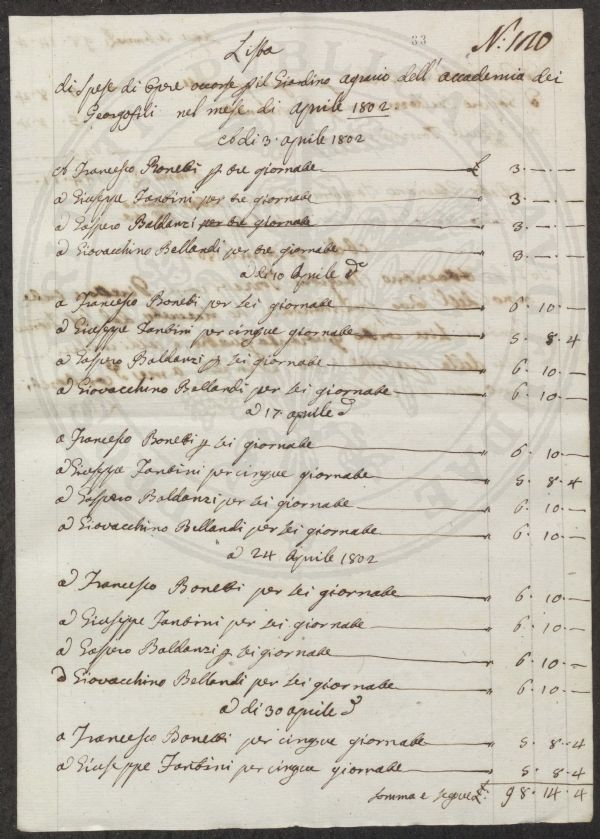 33
N: 120
Lista
di Spese di Opere occorse p il Giardino agrario dell' accademia dei
Georgofili nel mese di aprile 1802
A di 3. aprile 1802
A Francesco Bonetti p tre giornate £ 3. — —
a Giuseppe Fantini per tre giornate " 3. — —
a Gaspero Baldanzi per tre giornate " 3. — —
a Giovacchino Bellandi per tre giornate " 3. — —
a di 10 Aprile d.o
a Francesco Bonetti per sei giornate " 6. 10. —
a Giuseppe Fantini per cinque giornate " 5. 8. 4
a Gaspero Baldanzi p sei giornate " 6. 10. —
a Giovacchino Bellandi per sei giornate " 6. 10. —
a 17 aprile d.o
a Francesco Bonetti p sei giornate " 6. 10. —
a Giuseppe Fantini per cinque giornate " 5. 8. 4
a Gaspero Baldanzi per sei giornate " 6. 10. —
a Giovacchino Bellandi per sei giornate " 6. 10. —
a 24 Aprile 1802
a Francesco Bonetti per sei giornate " 6. 10. —
a Giuseppe Fantini per sei giornate " 6. 10. —
a Gaspero Baldanzi p sei giornate " 6. 10. —
a Giovacchino Bellandi per sei giornate " 6. 10. —
a di 30 aprile d.o
a Francesco Bonetti per cinque giornate " 5. 8. 4
a Giuseppe Fantini per cinque giornate " 5. 8. 4
somma e segue £. 98. 14. 4